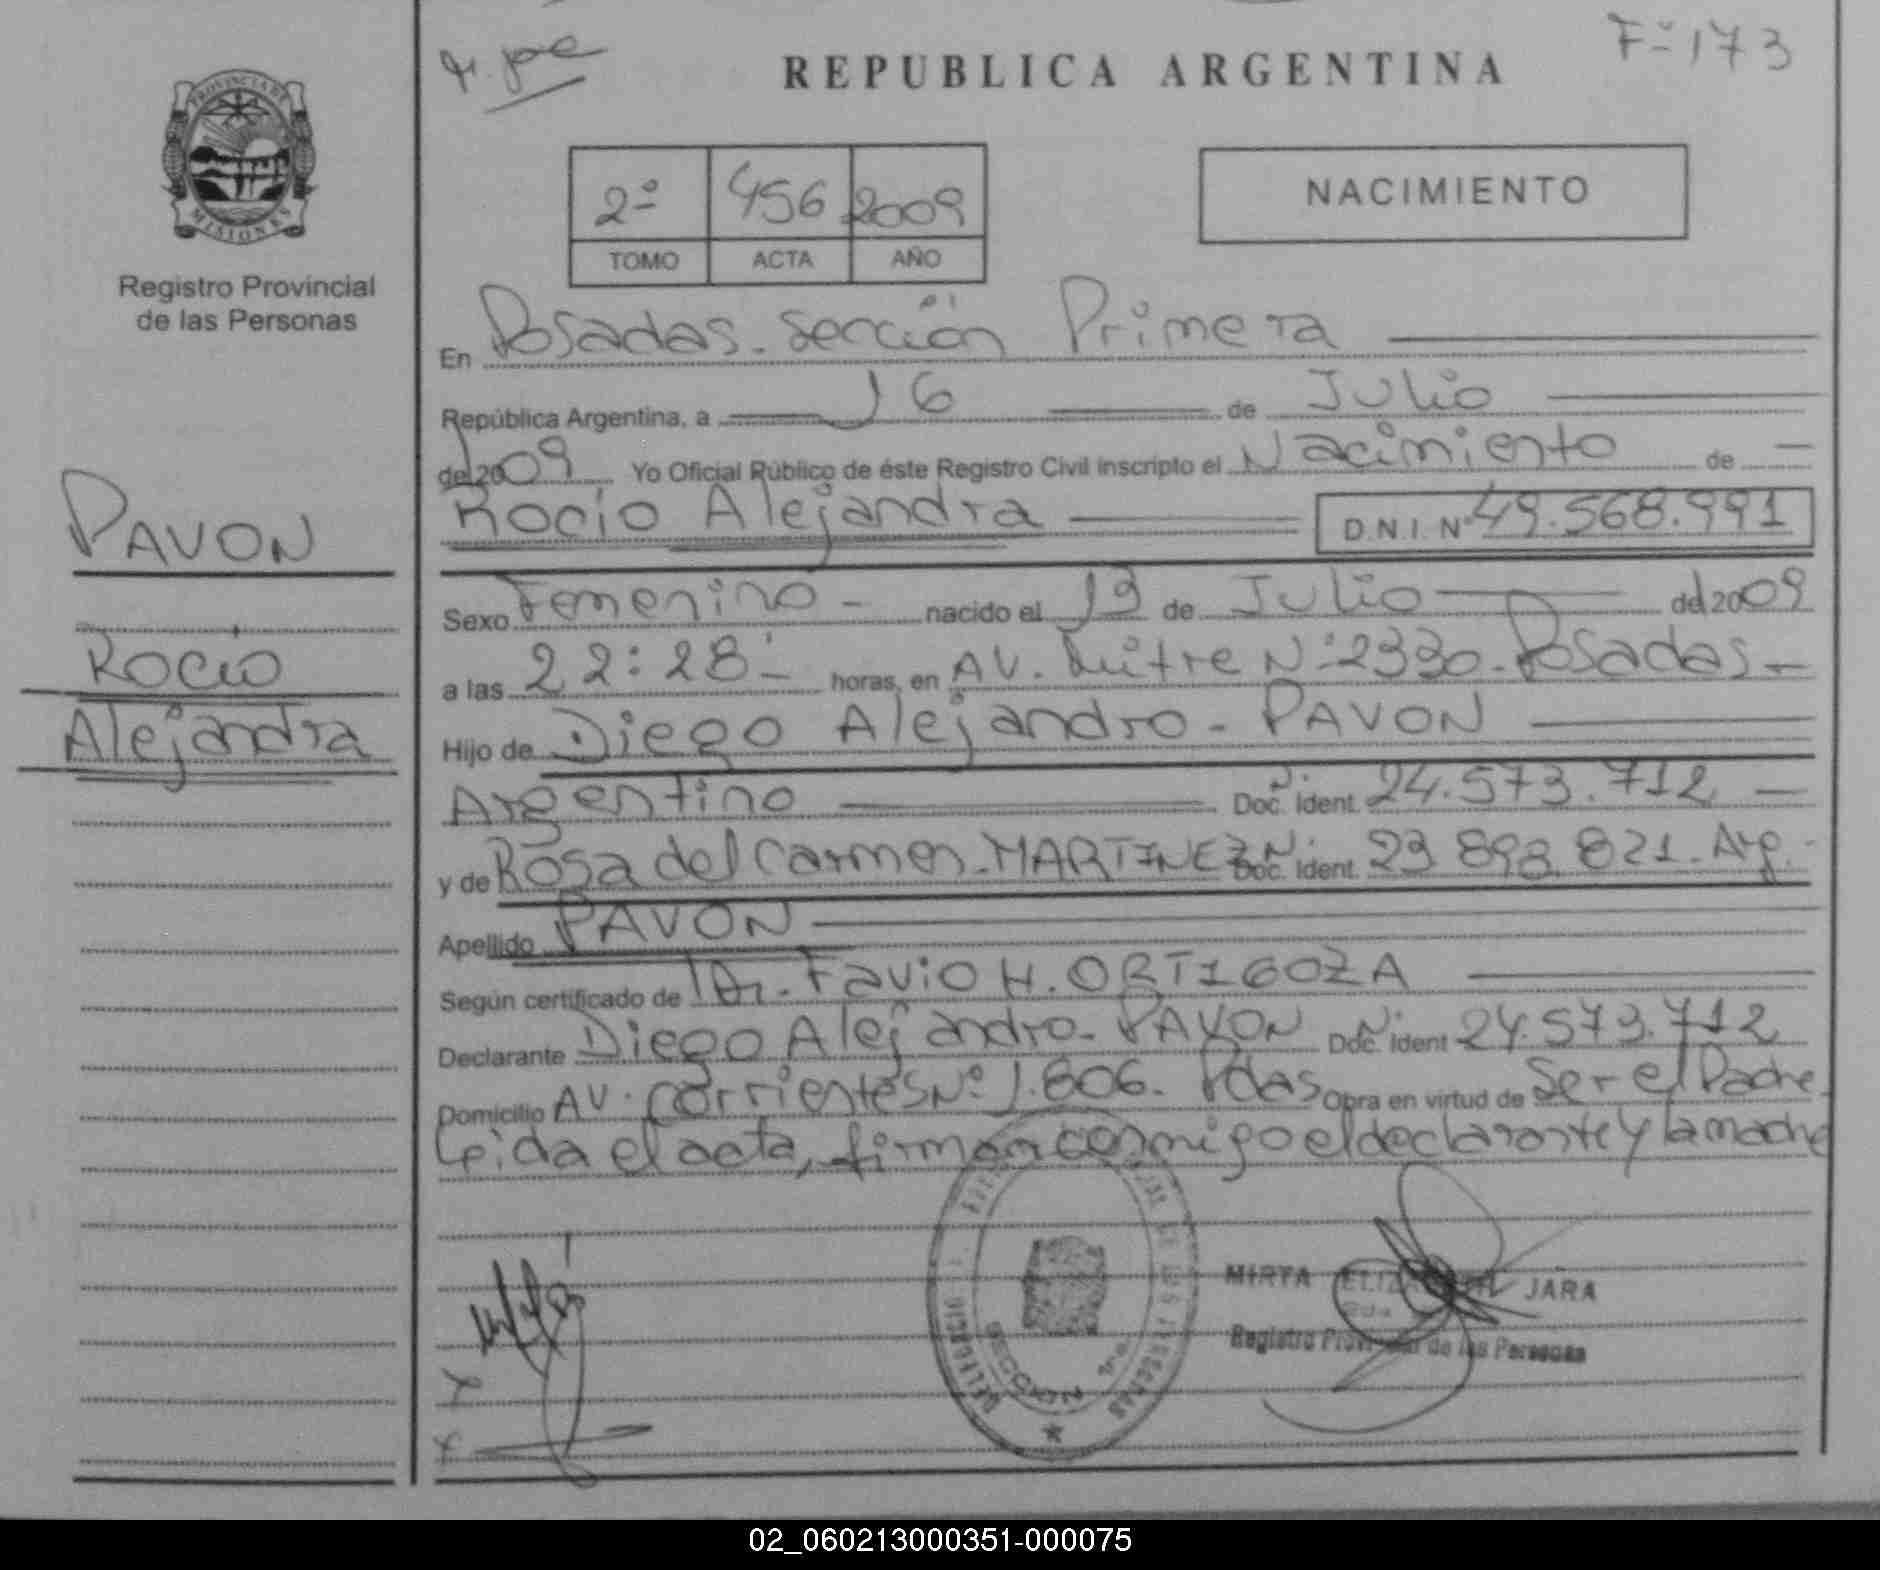 F=173
REPUBLICA ARGENTINA
PROVINCIA DE
MISIONES
Registro Provincial
de las Personas
2º 456 2009
TOMO ACTA AÑO
NACIMIENTO
En Posadas. Sección Primera
República Argentina, a 16 de Julio
del 2009 Yo Oficial Público de éste Registro Civil inscripto el Nacimiento de
Rocio Alejandra D.N.I. Nº 49.568.991
PAVON
Rocio
Alejandra
Sexo Femenino - nacido el 13 de Julio del 2009
a las 22:28'- horas, en AV. Mitre Nº 2330. Posadas -
Hijo de Diego Alejandro - PAVON
Argentino Doc. Ident. 24.573.712
y de Rosa del Carmen - MARTINEZ Doc. Ident. 23 893 821. Arg.
Apellido PAVON
Según certificado de Dr. Favio H. ORTIGOZA
Declarante Diego Alejandro - PAVON Doc. Ident 24.573.712
Domicilio AV. Corrientes Nº 1.806. Pdas Obra en virtud de Ser el Padre.
Leida el acta, firman conmigo el declarante y la madre
MIRTA ELIZABETH JARA
Registro Provincial de las Personas
DELEGACION
SECCION 1ra.
PERSONAS
02_060213000351-000075